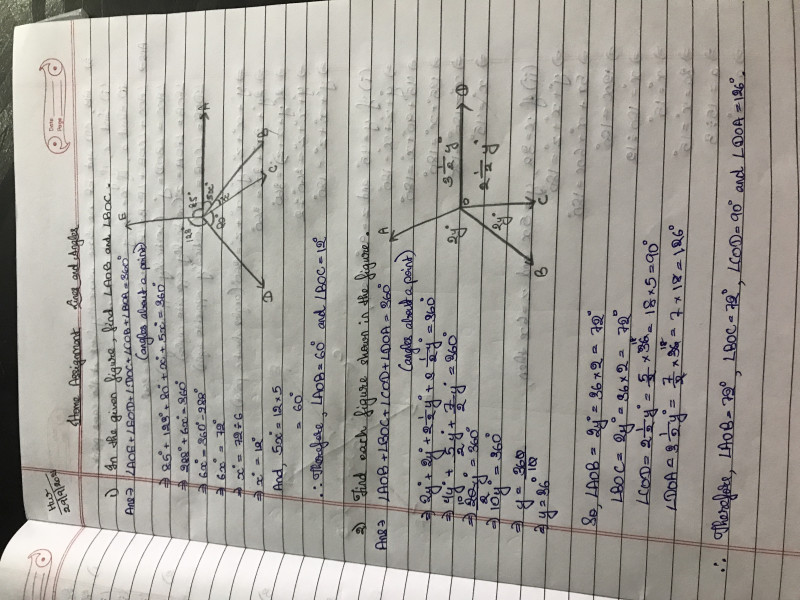 Date
Page
H.W
Home Assignment Lines and Angles
1) In the given figure, find ∠AOB and ∠BOC.
Ans→ ∠AOE+∠EOD+∠DOC+∠COB+∠BOA=360°
(angles about a point)
⇒ 85°+123°+80°+x°+5x°=360°
⇒ 288°+6x°=360°
⇒ 6x°=360°-288°
⇒ 6x°=72°
⇒ x°=72÷6
⇒ x°=12°
And, 5x=12×5
=60°
∴ Therefore, ∠AOB=60° and ∠BOC=12°
E
123°
85°
A
5x°
x°
80°
B
C
D
2) Find each figure shown in the figure.
Ans→ ∠AOB+∠BOC+∠COD+∠DOA=360°
(angles about a point)
⇒ 2y°+2y°+2 1/2 y°+3 1/2 y°=360°
⇒ 4y°+5/2 y°+7/2 y°=360°
⇒ 20/2 y°=360°
⇒ 10y°=360°
⇒ y=360/10
⇒ y=36°
A
2y°
O
3 1/2 y°
D
2y°
2 1/2 y°
B
C
So, ∠AOB=2y°=36×2=72°
∠BOC=2y°=36×2=72°
∠COD=2 1/2 y°=5/2×36=18×5=90°
∠DOA=3 1/2 y°=7/2×36=7×18=126°
∴ Therefore, ∠AOB=72°, ∠BOC=72°, ∠COD=90° and ∠DOA=126°.